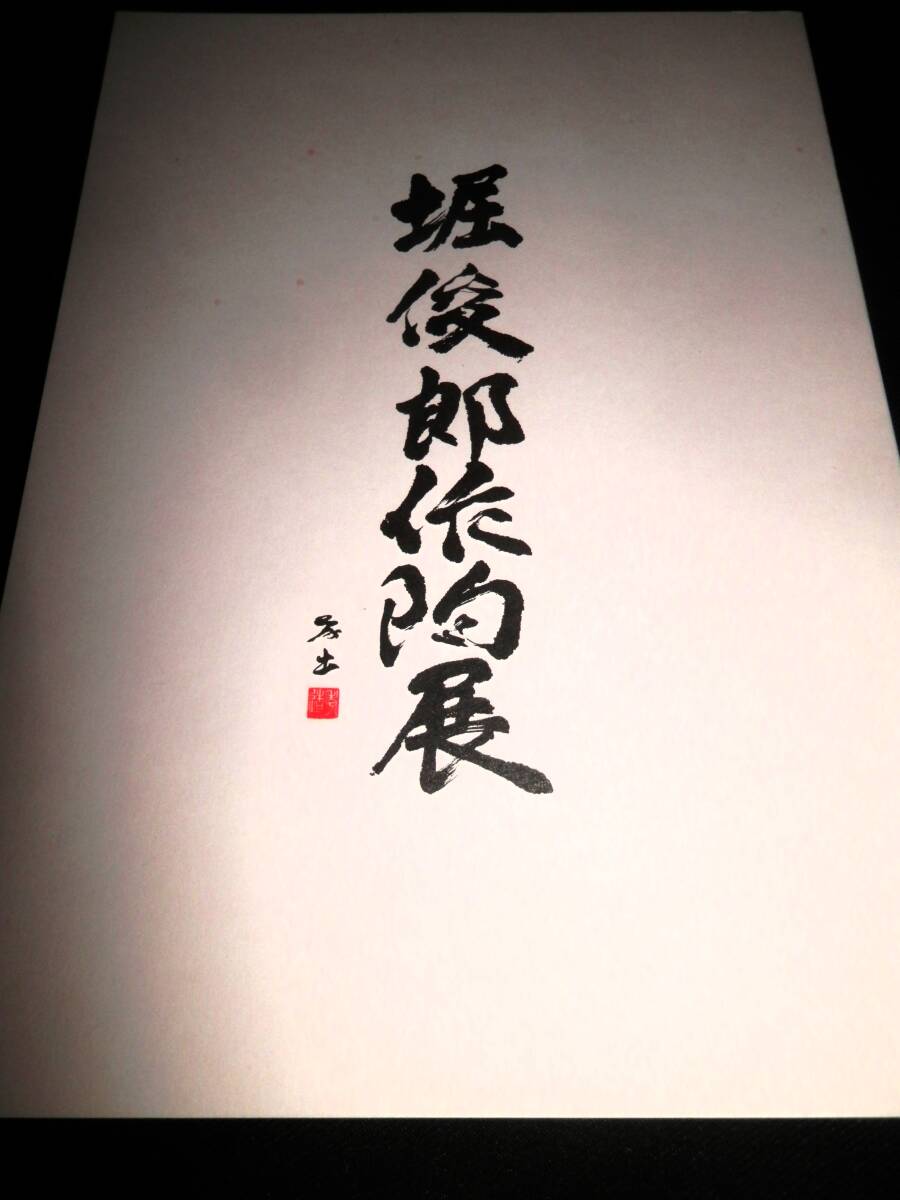 堀俊郎作陶展